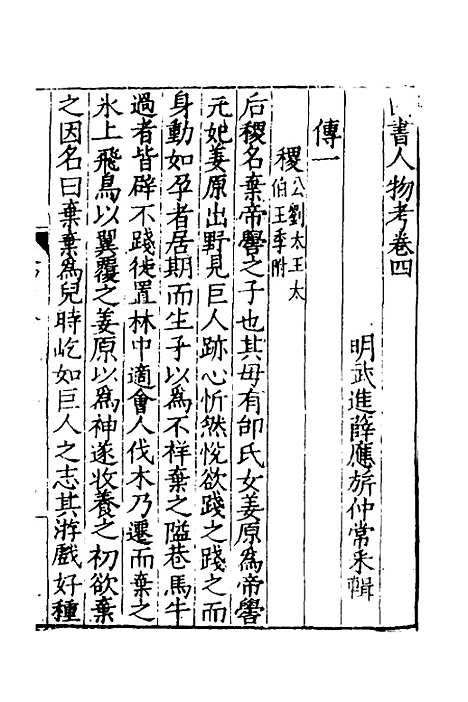 四書人物考卷四
明武進薛應旂仲常采輯
傳一
稷
公劉太王太
伯王季附
后稷名棄帝嚳之子也其毋有邰氏女姜原爲帝嚳
元妃姜原出野見巨人跡心忻然悅欲踐之踐之而
身動如孕者居期而生子以爲不祥棄之隘巷馬牛
過者皆辟不踐徙置林中適會人伐木乃遷而棄之
氷上飛鳥以翼覆之姜原以爲神遂收養之初欲棄
之因名曰棄棄爲兒時屹如巨人之志其游戲好種